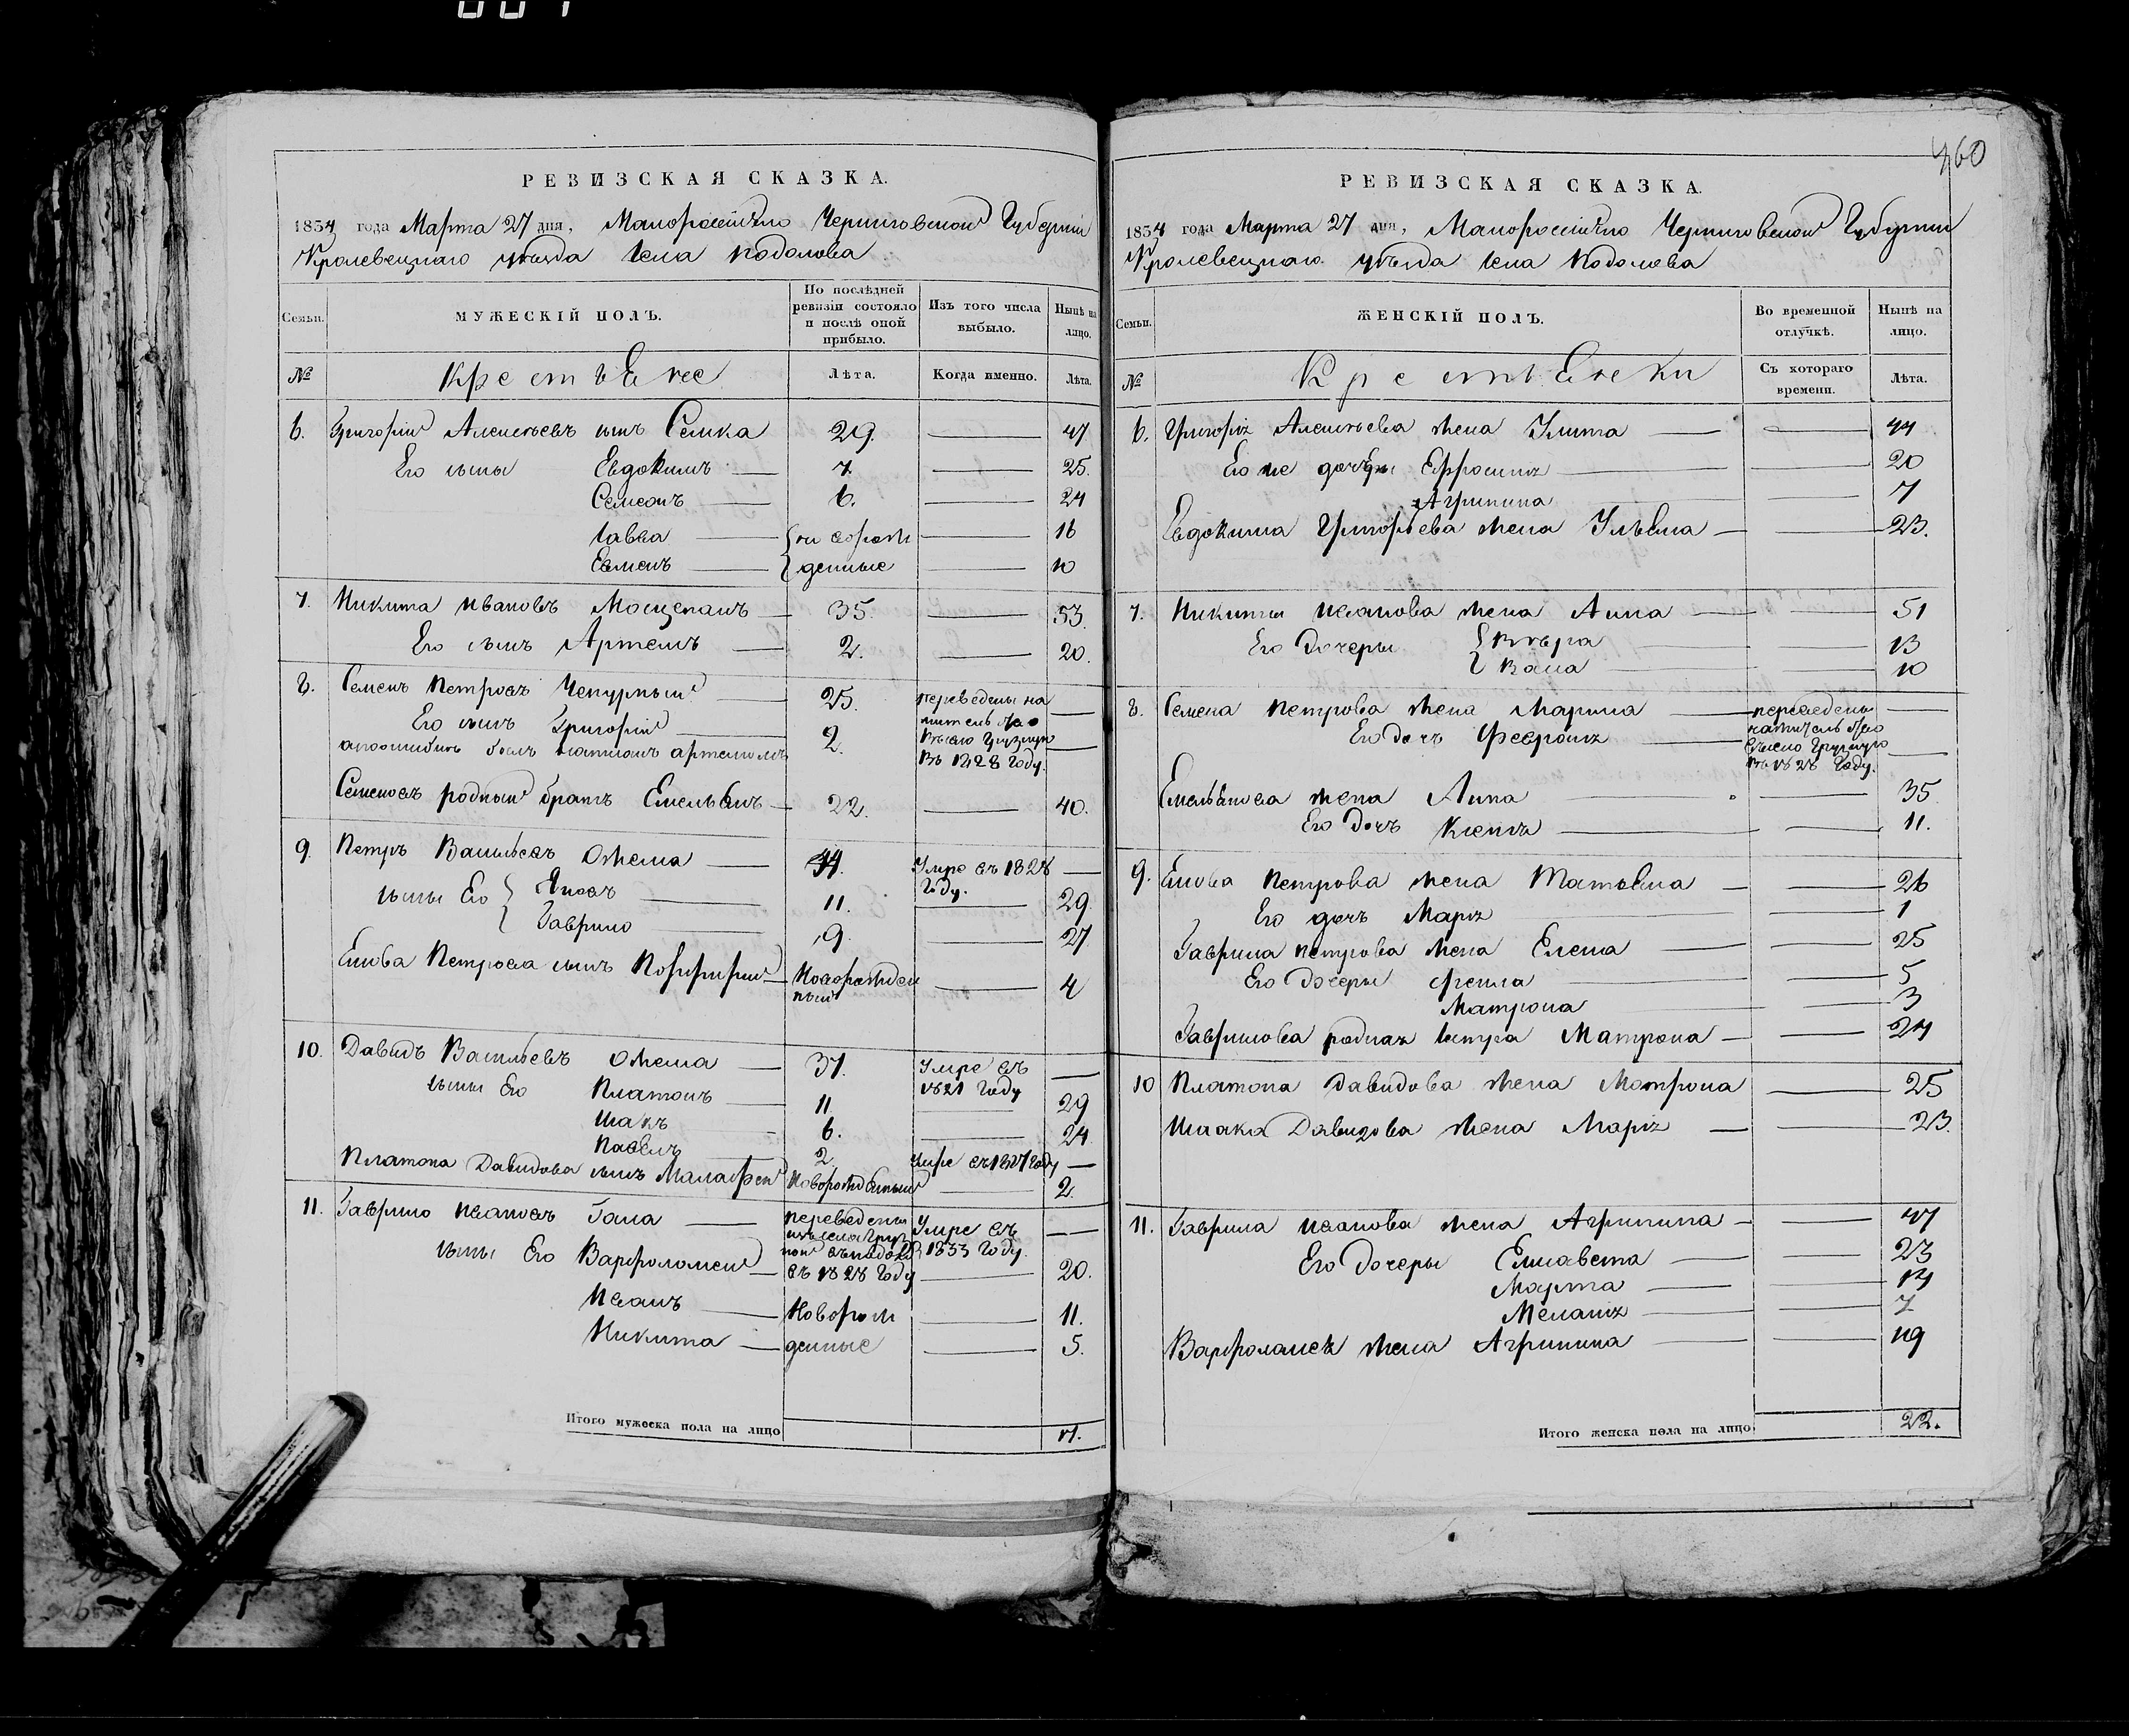 460
РЕВИЗСКАЯ СКАЗКА.
1834 года Марта 27 дня, Малороссійско Черниговской Губерніи
Кролевецкаго уѣзда села Подолова
Семьи.
МУЖЕСКІЙ ПОЛЪ.
По послѣдней ревизіи состояло и послѣ оной прибыло.
Изъ того числа выбыло.
Нынѣ на лицо.
№
Крестьяне
Лѣта.
Когда именно.
Лѣта.
6. Григорій Алексѣевъ сынъ Семка 29. 47
Его сыны Евдокимъ 7. 25.
Семенъ 6. 24
Савва новорож 16
Евменъ денные 10
7. Никита Ивановъ Мощепанъ 35. 53.
Его сынъ Артемъ 2. 20.
8. Семенъ Петровъ Чепурный 25. переведены на
Его сынъ Григорій 2. жительство
въ село
въ 1828 году.
Семеновъ родный братъ Емельянъ 22. 40.
9. Петръ Васильевъ Ожема 44. Умре въ 1828 году.
сыны Его Яковъ 11. 29.
Гаврило 9. 27
Якова Петрова сынъ Порфирій Новорожденный 4
10. Давидъ Васильевъ Ожема 37. Умре въ 1821 году
сыны Его Платонъ 11 29
Исакъ 6. 24.
Павелъ 2 Умре въ году
Платона Давидова сынъ Малафей Новорожденный 2.
11. Гаврило Ивановъ Гала переведены изъ села въ 1828 году Умре въ 1833 году.
сыны Его Варфоломей 20.
Иванъ Новорож 11.
Никита денные 5.
Итого мужеска пола на лицо 17.
РЕВИЗСКАЯ СКАЗКА.
1834 года Марта 27 дня, Малороссійско Черниговской Губерніи
Кролевецкаго уѣзда села Подолова
Семьи.
ЖЕНСКІЙ ПОЛЪ.
Во временной отлучкѣ.
Нынѣ на лицо.
№
Крестьянки
Съ котораго времени.
Лѣта.
6. Григорія Алексѣева жена Улита 44
Его же дочери Ефросинія 20
Агрипина 7
Евдокима Григорьева жена Ульяна 23.
7. Никиты Иванова жена Анна 51
Его дочеры Вѣра 13
10
8. Семена Петрова жена Марина переведены
Его дочь Феврония на жительство
въ село
въ 1828 году.
Емельянова жена Анна 35
Его дочь Ксенія 11.
9. Якова Петрова жена Татьяна 26
Его дочь Марія 1
Гаврила Петрова жена Елена 25
Его дочеры Фекла 5
Матрона 3
Гаврилова родная сестра Матрона 24
10 Платона Давидова жена Матрона 25
Исаака Давидова жена Марія 23.
11. Гаврила Иванова жена Агрипина 47
Его дочеры Елисавета 23
Марта 14
Меланія 7
Варфоломея жена Агрипина 19
Итого женска пола на лицо 22.